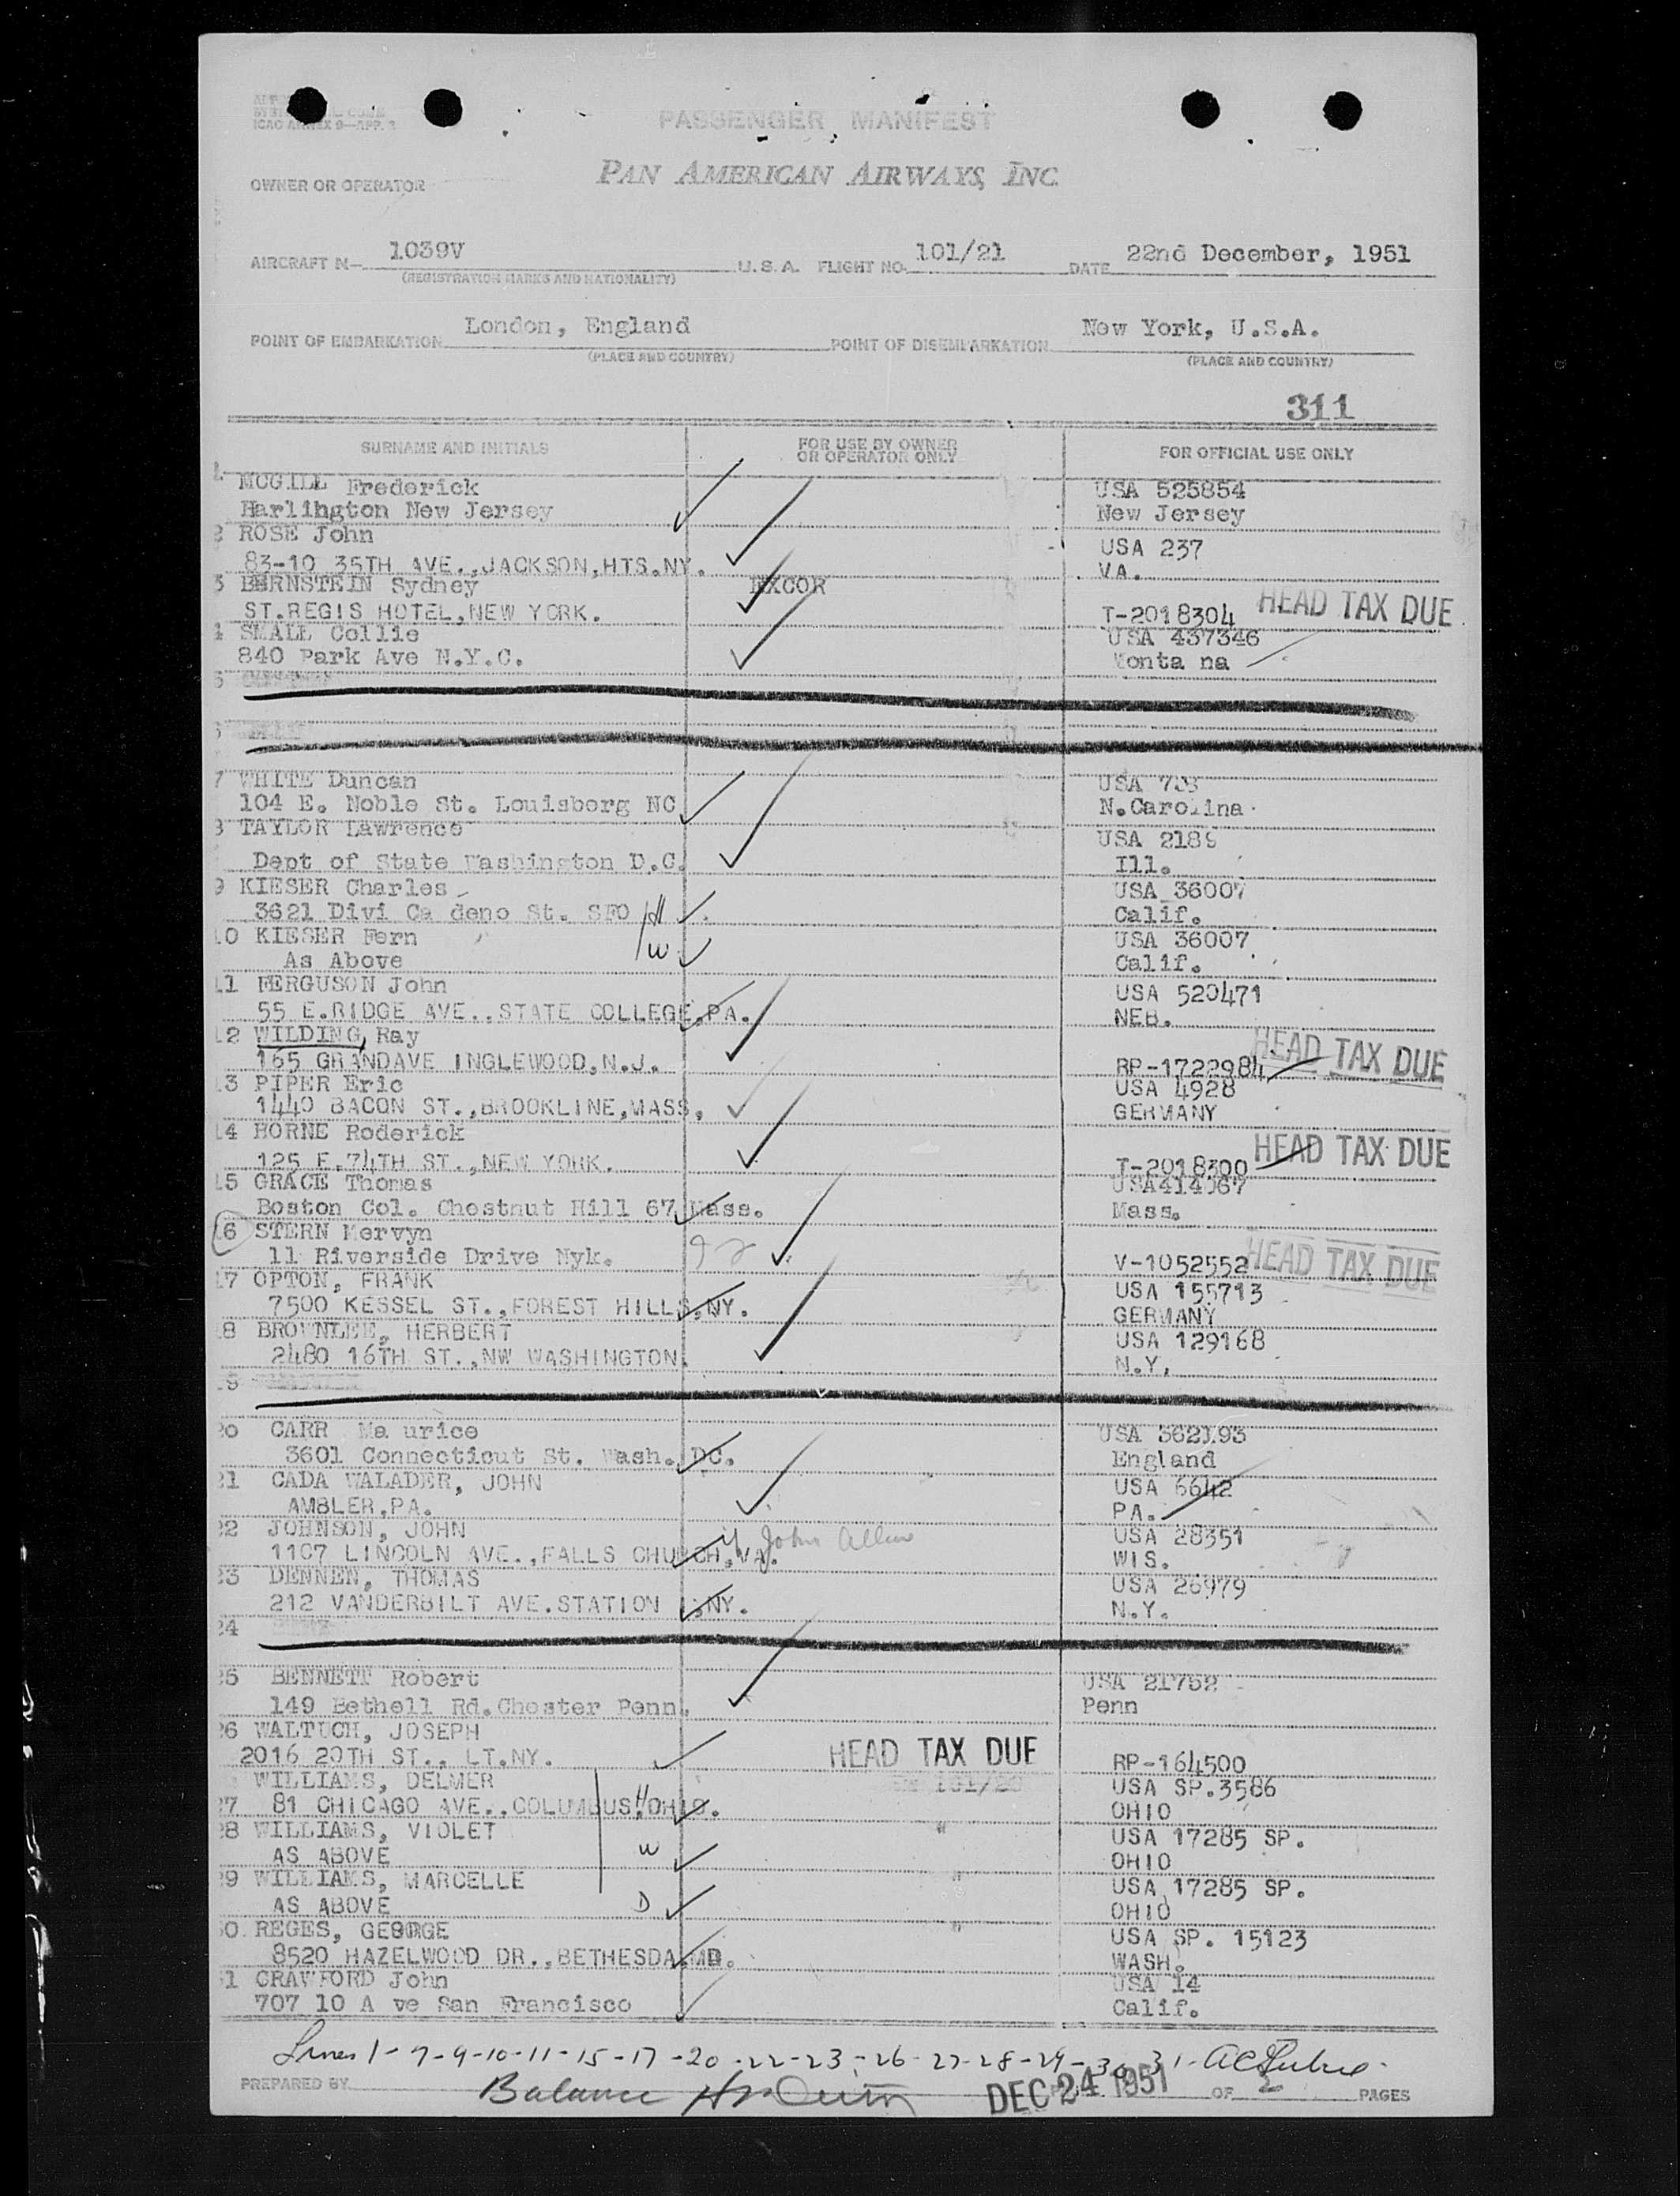 ICAO ANNEX 9—APP. 3
PASSENGER MANIFEST
OWNER OR OPERATOR
PAN AMERICAN AIRWAYS, INC.
AIRCRAFT N— 1039V U.S.A. FLIGHT NO. 101/21 DATE 22nd December, 1951
(REGISTRATION MARKS AND NATIONALITY)
POINT OF EMBARKATION London, England POINT OF DISEMBARKATION New York, U.S.A.
(PLACE AND COUNTRY) (PLACE AND COUNTRY)
311
SURNAME AND INITIALS FOR USE BY OWNER OR OPERATOR ONLY FOR OFFICIAL USE ONLY
1 MCGILL Frederick USA 525854
Harlington New Jersey New Jersey
2 ROSE John USA 237
83-10 35TH AVE.,JACKSON,HTS.NY. VA.
3 BERNSTEIN Sydney EXCOR HEAD TAX DUE
ST.REGIS HOTEL,NEW YORK. T-2018304
4 SMALL Collie USA 437346
840 Park Ave N.Y.C. Monta na
5
7 WHITE Duncan USA
104 E. Noble St. Louisborg NC N.Carolina
8 TAYLOR Lawrence USA 2189
Dept of State Washington D.C. Ill.
9 KIESER Charles USA 36007
3621 Divi Ca dero St. SFO H Calif.
10 KIESER Fern USA 36007
As Above W Calif.
11 FERGUSON John USA 520471
55 E.RIDGE AVE.,STATE COLLEGE,PA. NEB.
12 WILDING, Ray HEAD TAX DUE
165 GRANDAVE INGLEWOOD,N.J. RP-1722984
13 PIPER Eric USA 4928
1440 BACON ST.,BROOKLINE,MASS. GERMANY
14 HORNE Roderick HEAD TAX DUE
125 E.74TH ST.,NEW YORK. T-2018300
15 GRACE Thomas USA414067
Boston Col. Chestnut Hill 67 Mass. Mass.
16 STERN Mervyn
11 Riverside Drive Nyk. V-1052552 HEAD TAX DUE
17 OPTON, FRANK USA 155713
7500 KESSEL ST.,FOREST HILLS,NY. GERMANY
18 BROWNLEE, HERBERT USA 129168
2480 16TH ST.,NW WASHINGTON. N.Y.
19
20 CARR Ma urice USA 362193
3601 Connecticut St. Wash. DC. England
21 CADA WALADER, JOHN USA 6642
AMBLER,PA. PA.
22 JOHNSON, JOHN John Allen USA 28351
1107 LINCOLN AVE.,FALLS CHURCH,VA. WIS.
23 DENNEN, THOMAS USA 26979
212 VANDERBILT AVE.STATION NY. N.Y.
24
25 BENNETT Robert USA 21752
149 Bethell Rd.Chester Penn. Penn
26 WALTUCH, JOSEPH
2016 20TH ST., LT.NY. HEAD TAX DUE RP-164500
WILLIAMS, DELMER USA SP.3586
27 81 CHICAGO AVE.,COLUMBUS,OHIO. H OHIO
28 WILLIAMS, VIOLET " USA 17285 SP.
AS ABOVE W OHIO
29 WILLIAMS, MARCELLE " USA 17285 SP.
AS ABOVE D OHIO
30 REGES, GEORGE " USA SP. 15123
8520 HAZELWOOD DR.,BETHESDA.MD. WASH.
31 CRAWFORD John USA 14
707 10 A ve San Francisco Calif.
Lines 1-7-9-10-11-15-17-20-22-23-26-27-28-29-30-31-
PREPARED BY Balance DEC 24 1951 OF 2 PAGES